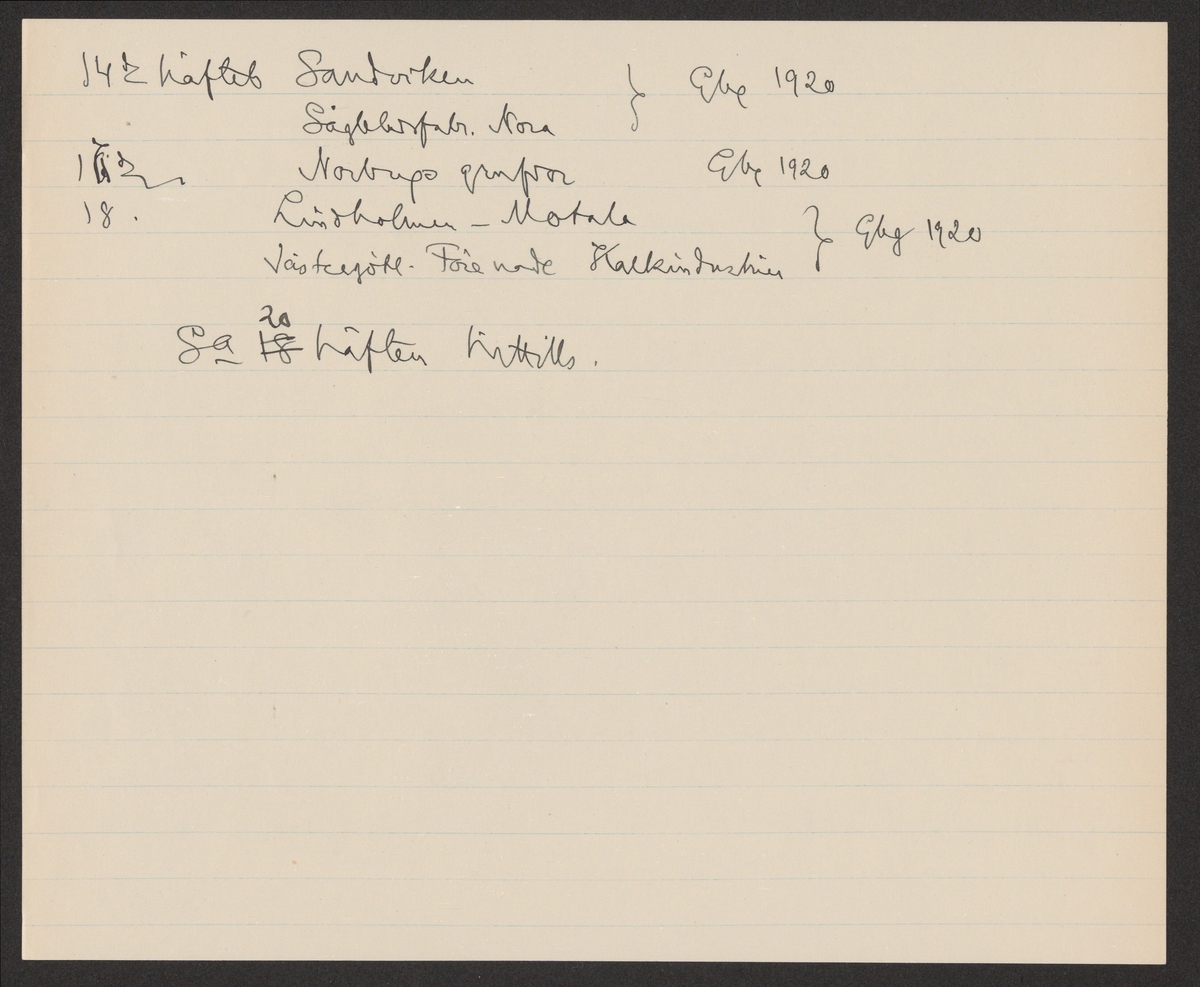 14 häftet Sandviken } Gbg 1920
Sågbladsfabr. Nora
Norbergs grufvor Gbg 1920
18. Lindholmen – Motala } Gbg 1920
Västergötl. Förenade Kalkindustrier
Sa 20 18 häften hittills.